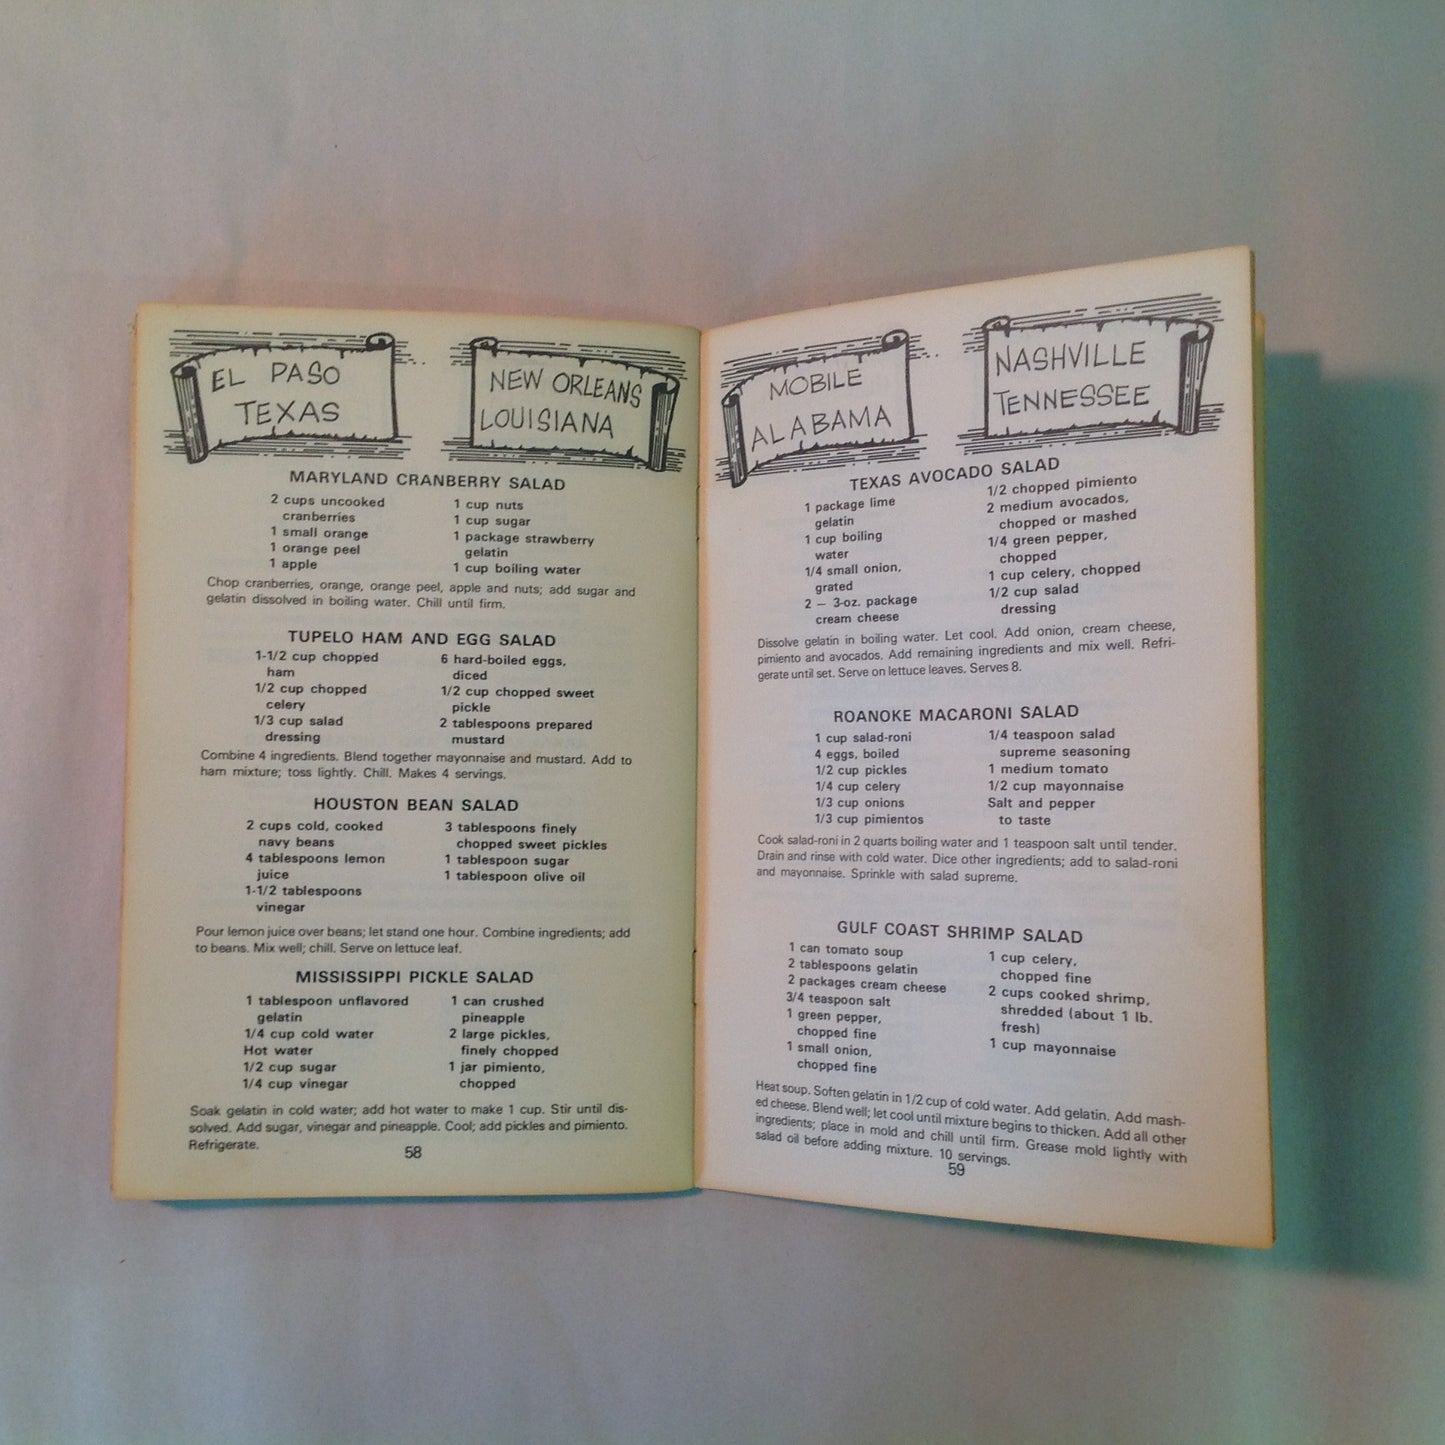 EL PASO
TEXAS
NEW ORLEANS
LOUISIANA
MARYLAND CRANBERRY SALAD
2 cups uncooked
cranberries
1 small orange
1 orange peel
1 apple
1 cup nuts
1 cup sugar
1 package strawberry
gelatin
1 cup boiling water
Chop cranberries, orange, orange peel, apple and nuts; add sugar and
gelatin dissolved in boiling water. Chill until firm.
TUPELO HAM AND EGG SALAD
1-1/2 cup chopped
ham
1/2 cup chopped
celery
1/3 cup salad
dressing
6 hard-boiled eggs,
diced
1/2 cup chopped sweet
pickle
2 tablespoons prepared
mustard
Combine 4 ingredients. Blend together mayonnaise and mustard. Add to
ham mixture; toss lightly. Chill. Makes 4 servings.
HOUSTON BEAN SALAD
2 cups cold, cooked
navy beans
4 tablespoons lemon
juice
1-1/2 tablespoons
vinegar
3 tablespoons finely
chopped sweet pickles
1 tablespoon sugar
1 tablespoon olive oil
Pour lemon juice over beans; let stand one hour. Combine ingredients; add
to beans. Mix well; chill. Serve on lettuce leaf.
MISSISSIPPI PICKLE SALAD
1 tablespoon unflavored
gelatin
1/4 cup cold water
Hot water
1/2 cup sugar
1/4 cup vinegar
1 can crushed
pineapple
2 large pickles,
finely chopped
1 jar pimiento,
chopped
Soak gelatin in cold water; add hot water to make 1 cup. Stir until dis-
solved. Add sugar, vinegar and pineapple. Cool; add pickles and pimiento.
Refrigerate.
58
MOBILE
ALABAMA
NASHVILLE
TENNESSEE
TEXAS AVOCADO SALAD
1 package lime
gelatin
1 cup boiling
water
1/4 small onion,
grated
2 — 3-oz. package
cream cheese
1/2 chopped pimiento
2 medium avocados,
chopped or mashed
1/4 green pepper,
chopped
1 cup celery, chopped
1/2 cup salad
dressing
Dissolve gelatin in boiling water. Let cool. Add onion, cream cheese,
pimiento and avocados. Add remaining ingredients and mix well. Refri-
gerate until set. Serve on lettuce leaves. Serves 8.
ROANOKE MACARONI SALAD
1 cup salad-roni
4 eggs, boiled
1/2 cup pickles
1/4 cup celery
1/3 cup onions
1/3 cup pimientos
1/4 teaspoon salad
supreme seasoning
1 medium tomato
1/2 cup mayonnaise
Salt and pepper
to taste
Cook salad-roni in 2 quarts boiling water and 1 teaspoon salt until tender.
Drain and rinse with cold water. Dice other ingredients; add to salad-roni
and mayonnaise. Sprinkle with salad supreme.
GULF COAST SHRIMP SALAD
1 can tomato soup
2 tablespoons gelatin
2 packages cream cheese
3/4 teaspoon salt
1 green pepper,
chopped fine
1 small onion,
chopped fine
1 cup celery,
chopped fine
2 cups cooked shrimp,
shredded (about 1 lb.
fresh)
1 cup mayonnaise
Heat soup. Soften gelatin in 1/2 cup of cold water. Add gelatin. Add mash-
ed cheese. Blend well; let cool until mixture begins to thicken. Add all other
ingredients; place in mold and chill until firm. Grease mold lightly with
salad oil before adding mixture. 10 servings.
59